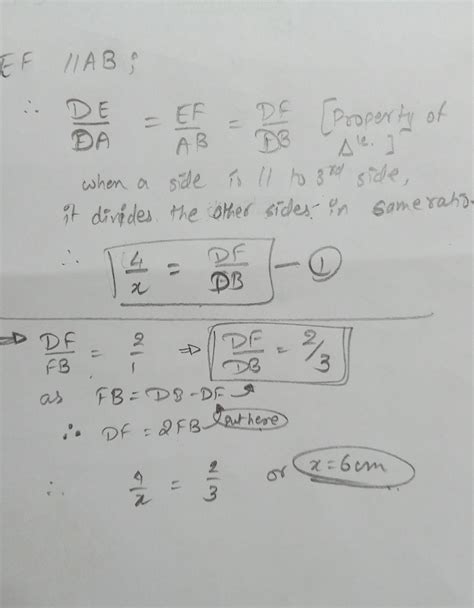 EF //AB;
∴ DE/DA = EF/AB = DF/DB [Property of Δle.]
when a side is 11 to 3rd side,
it divides the other sides in same ratio.
∴ 4/x = DF/DB — ①
⇒ DF/FB = 2/1 ⇒ DF/DB = 2/3
as FB = DB - DF
∴ DF = 2FB put here
∴ 4/x = 2/3 or x = 6cm